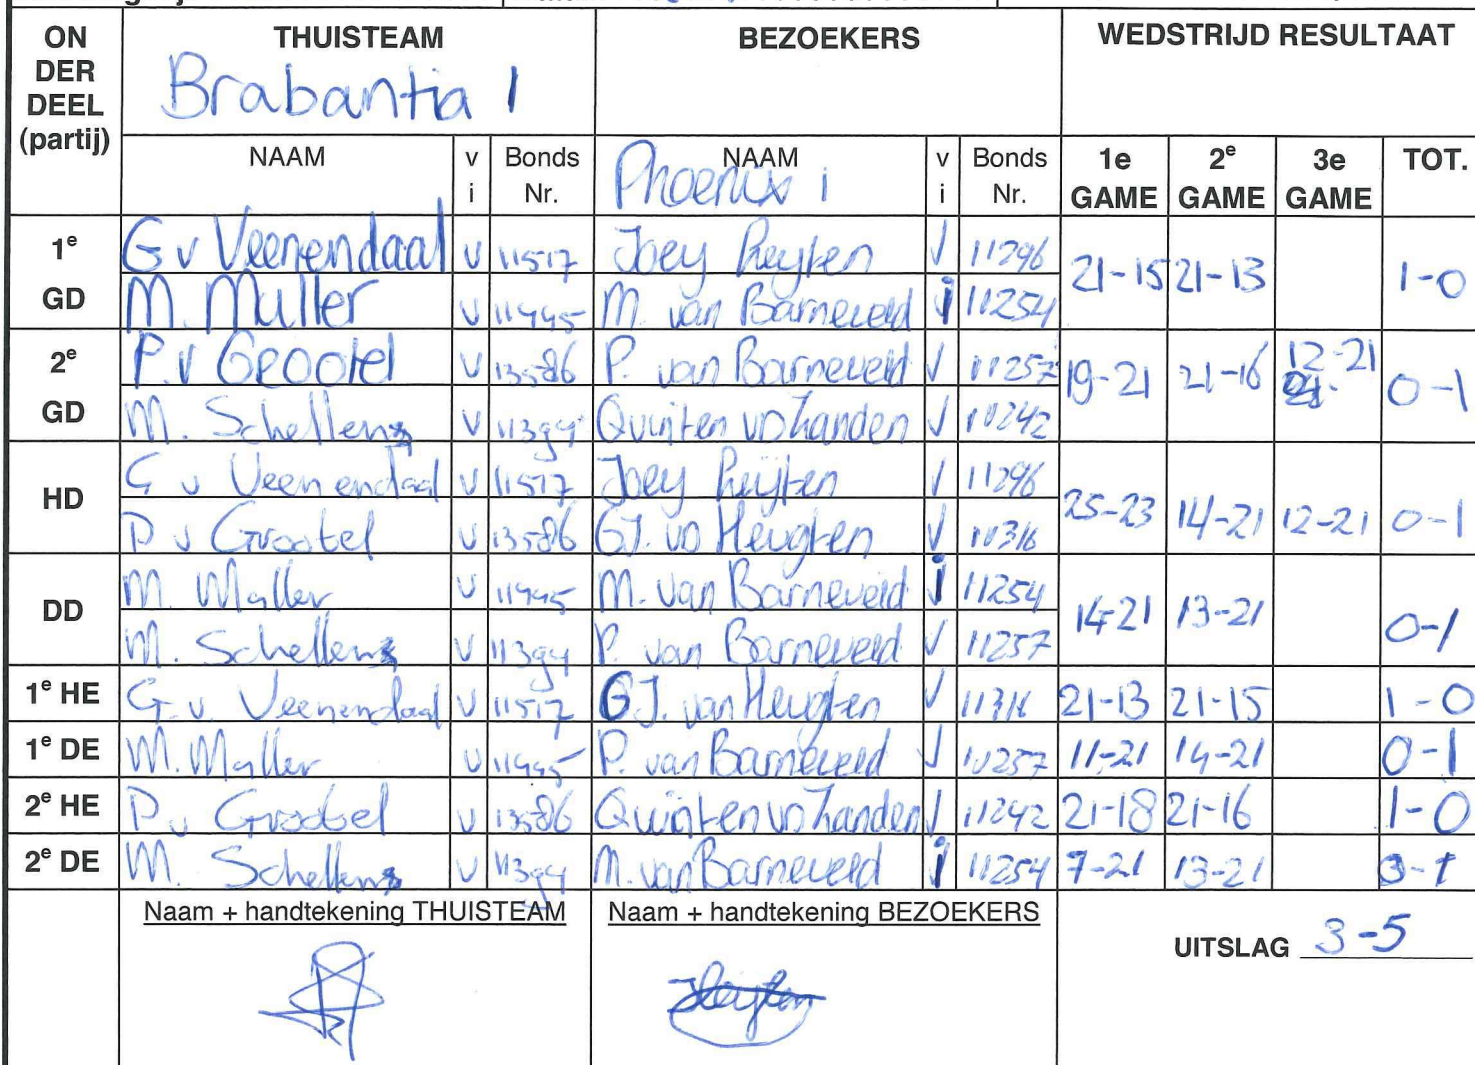 ON DER DEEL (partij) THUISTEAM BEZOEKERS WEDSTRIJD RESULTAAT
Brabantia 1
NAAM vi Bonds Nr. NAAM vi Bonds Nr. 1e GAME 2e GAME 3e GAME TOT.
Phoenix 1
1e GD G v Veenendaal v 11517 Joey Reyten v 11296 21-15 21-13 1-0
M. Muller v 11445 M. van Barneveld i 11254
2e GD P. v Grootel v 13586 P. van Barneveld v 11257 19-21 21-16 12-21 0-1
M. Schellens v 11394 Quinten vd Zanden v 11242
HD G v Veenendaal v 11517 Joey Reijten v 11296 25-23 14-21 12-21 0-1
P v Grootel v 13586 GJ. vd Heugten v 11316
DD M. Muller v 11445 M. van Barneveld i 11254 14-21 13-21 0-1
M. Schellens v 11394 P. van Barneveld v 11257
1e HE G. v. Veenendaal v 11517 GJ. van Heugten v 11316 21-13 21-15 1-0
1e DE M. Muller v 11445 P. van Barneveld v 11257 11-21 14-21 0-1
2e HE P v Grootel v 13586 Quinten vd Zanden v 11242 21-18 21-16 1-0
2e DE M. Schellens v 11394 M. van Barneveld i 11254 7-21 13-21 0-1
Naam + handtekening THUISTEAM Naam + handtekening BEZOEKERS
UITSLAG 3-5